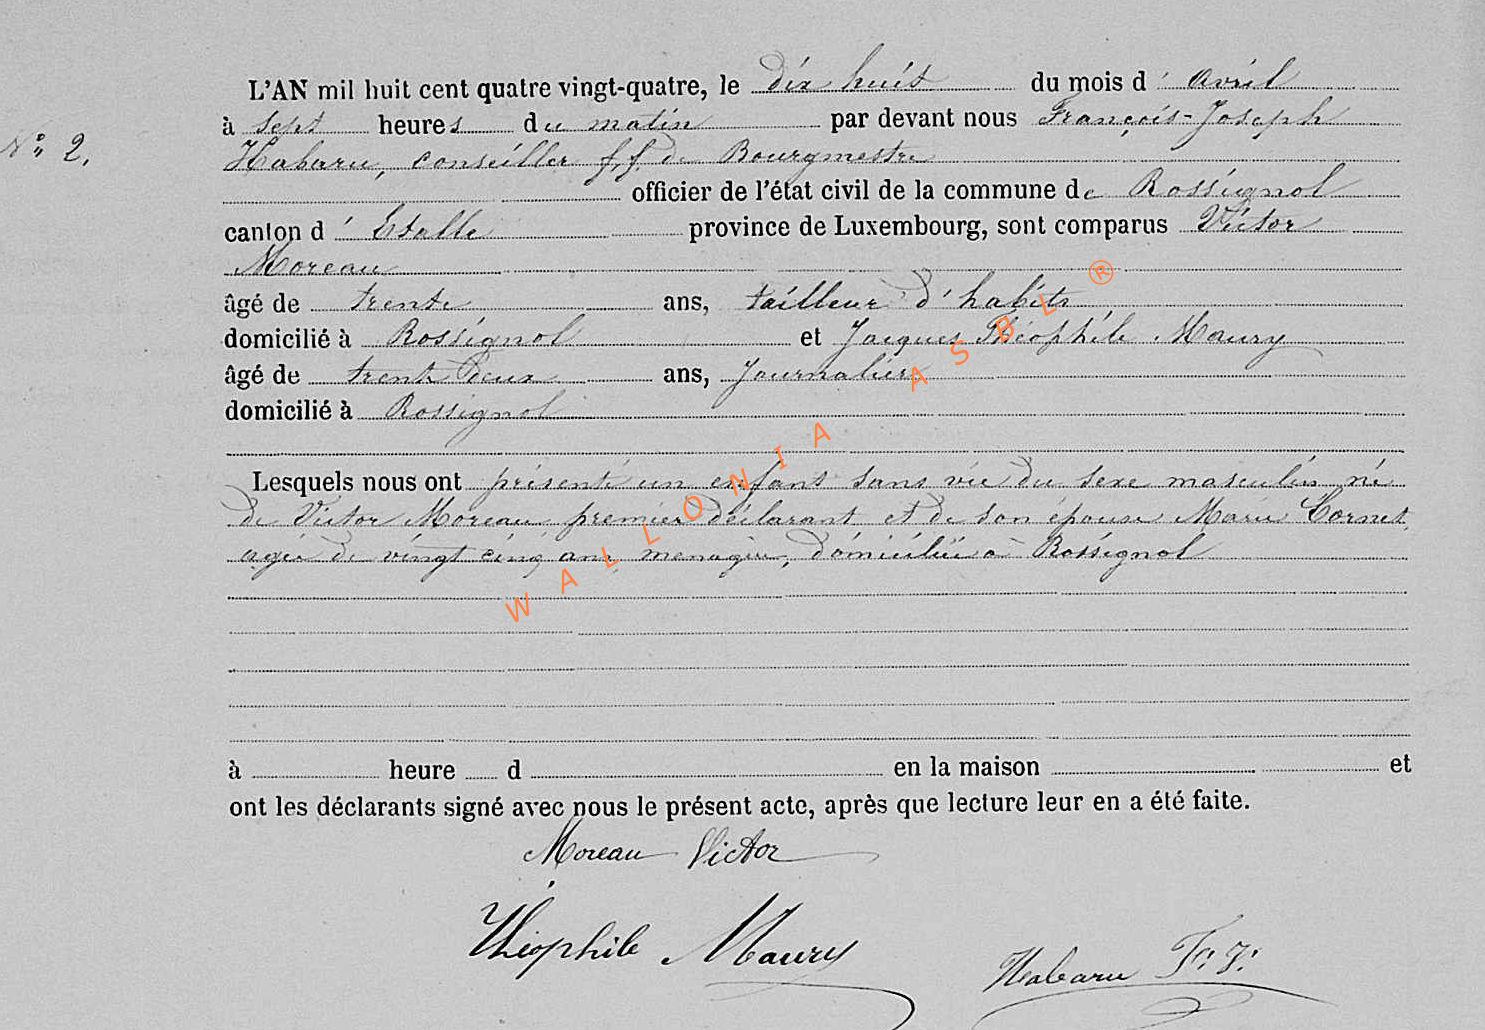 L'AN mil huit cent quatre vingt-quatre, le dix huit du mois d' avril
N° 2. à sept heures du matin par devant nous François-Joseph
Habaru, conseiller f.f. de Bourgmestre
officier de l'état civil de la commune de Rossignol
canton d' Etalle province de Luxembourg, sont comparus Victor
Moreau
âgé de trente ans, tailleur d'habits
domicilié à Rossignol et Jacques Théophile Maury
âgé de trente deux ans, Journalier
domicilié à Rossignol
Lesquels nous ont présenté un enfant sans vie du sexe masculin né
de Victor Moreau premier déclarant et de son épouse Marie Cornet
agée de vingt cinq ans, menagère, domiciliée à Rossignol
à heure d en la maison et
ont les déclarants signé avec nous le présent acte, après que lecture leur en a été faite.
Moreau Victor
Théophile Maury
Habaru F. J.
WALLONIA ASBL ®